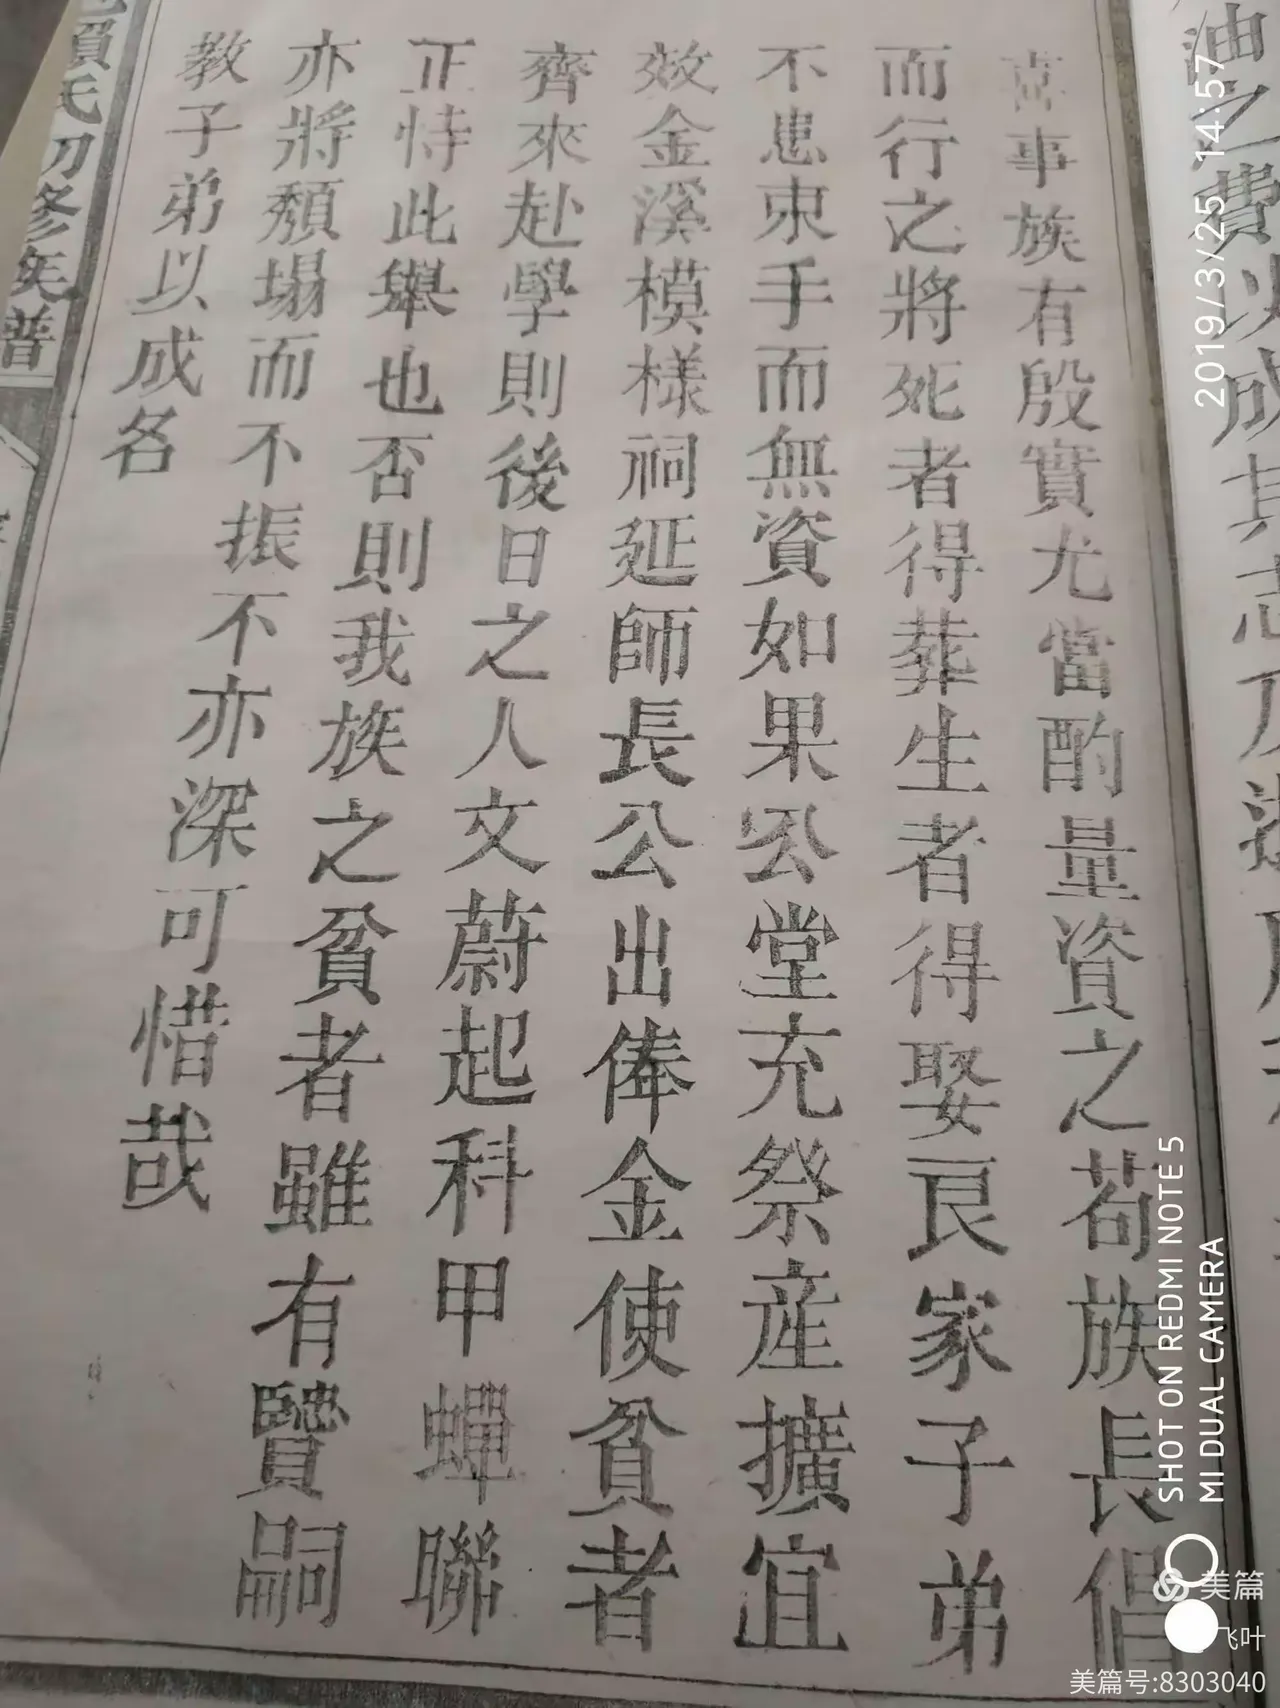 油之費以成其志
喜事族有殷實尤當酌量資之若族長倡
而行之將死者得葬生者得娶良家子弟
不患束手而無資如果公堂充祭産擴宜
效金溪模樣祠延師長公出俸金使貧者
齊來赴學則後日之人文蔚起科甲蟬聯
正恃此舉也否則我族之貧者雖有賢嗣
亦將頽塌而不振不亦深可惜哉
教子弟以成名
賴氏初修族譜
2019/3/25 14:57
SHOT ON REDMI NOTE 5
MI DUAL CAMERA
美篇
飞叶
美篇号:8303040